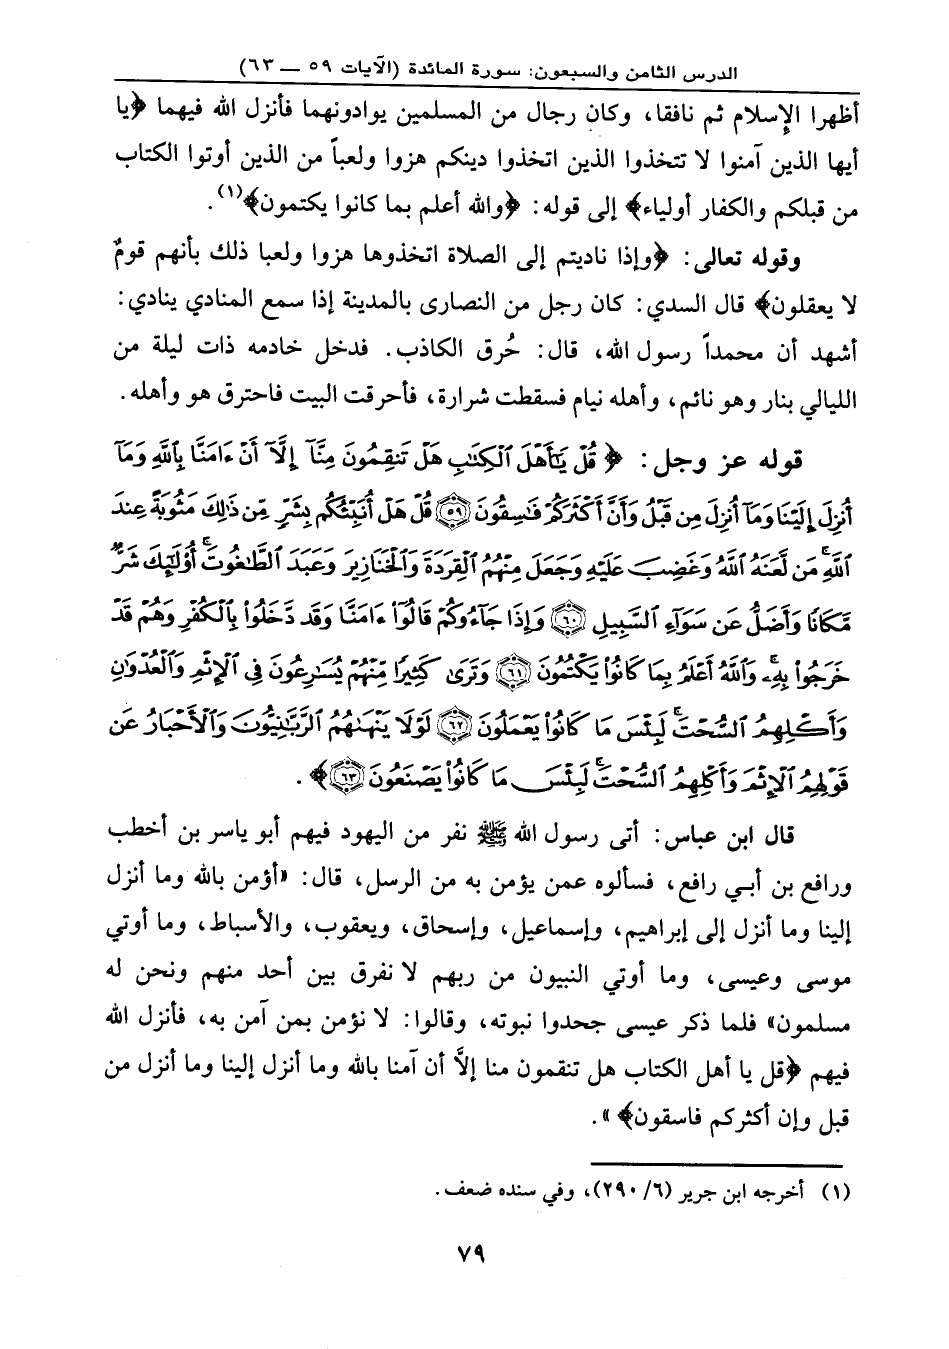 الدرس الثامن والسبعون: سورة المائدة (الآيات ٥٩ — ٦٣)
أظهرا الإسلام ثم نافقا، وكان رجال من المسلمين يوادونهما فأنزل الله فيهما ﴿يا
أيها الذين آمنوا لا تتخذوا الذين اتخذوا دينكم هزوا ولعباً من الذين أوتوا الكتاب
من قبلكم والكفار أولياء﴾ إلى قوله: ﴿والله أعلم بما كانوا يكتمون﴾(١).
وقوله تعالى: ﴿وإذا ناديتم إلى الصلاة اتخذوها هزوا ولعبا ذلك بأنهم قومٌ
لا يعقلون﴾ قال السدي: كان رجل من النصارى بالمدينة إذا سمع المنادي ينادي:
أشهد أن محمداً رسول الله، قال: حُرق الكاذب. فدخل خادمه ذات ليلة من
الليالي بنار وهو نائم، وأهله نيام فسقطت شرارة، فأحرقت البيت فاحترق هو وأهله.
قوله عز وجل: ﴿ قُلْ يَٰٓأَهْلَ ٱلْكِتَٰبِ هَلْ تَنقِمُونَ مِنَّآ إِلَّآ أَنْ ءَامَنَّا بِٱللَّهِ وَمَآ
أُنزِلَ إِلَيْنَا وَمَآ أُنزِلَ مِن قَبْلُ وَأَنَّ أَكْثَرَكُمْ فَٰسِقُونَ ۝٥٩ قُلْ هَلْ أُنَبِّئُكُم بِشَرٍّ مِّن ذَٰلِكَ مَثُوبَةً عِندَ
ٱللَّهِ ۚ مَن لَّعَنَهُ ٱللَّهُ وَغَضِبَ عَلَيْهِ وَجَعَلَ مِنْهُمُ ٱلْقِرَدَةَ وَٱلْخَنَازِيرَ وَعَبَدَ ٱلطَّٰغُوتَ ۚ أُو۟لَٰٓئِكَ شَرٌّ
مَّكَانًا وَأَضَلُّ عَن سَوَآءِ ٱلسَّبِيلِ ۝٦٠ وَإِذَا جَآءُوكُمْ قَالُوٓا۟ ءَامَنَّا وَقَد دَّخَلُوا۟ بِٱلْكُفْرِ وَهُمْ قَدْ
خَرَجُوا۟ بِهِۦ ۚ وَٱللَّهُ أَعْلَمُ بِمَا كَانُوا۟ يَكْتُمُونَ ۝٦١ وَتَرَىٰ كَثِيرًا مِّنْهُمْ يُسَٰرِعُونَ فِى ٱلْإِثْمِ وَٱلْعُدْوَٰنِ
وَأَكْلِهِمُ ٱلسُّحْتَ ۚ لَبِئْسَ مَا كَانُوا۟ يَعْمَلُونَ ۝٦٢ لَوْلَا يَنْهَىٰهُمُ ٱلرَّبَّٰنِيُّونَ وَٱلْأَحْبَارُ عَن
قَوْلِهِمُ ٱلْإِثْمَ وَأَكْلِهِمُ ٱلسُّحْتَ ۚ لَبِئْسَ مَا كَانُوا۟ يَصْنَعُونَ ۝٦٣﴾.
قال ابن عباس: أتى رسول الله ﷺ نفر من اليهود فيهم أبو ياسر بن أخطب
ورافع بن أبي رافع، فسألوه عمن يؤمن به من الرسل، قال: «أؤمن بالله وما أنزل
إلينا وما أنزل إلى إبراهيم، وإسماعيل، وإسحاق، ويعقوب، والأسباط، وما أوتي
موسى وعيسى، وما أوتي النبيون من ربهم لا نفرق بين أحد منهم ونحن له
مسلمون» فلما ذكر عيسى جحدوا نبوته، وقالوا: لا نؤمن بمن آمن به، فأنزل الله
فيهم ﴿قل يا أهل الكتاب هل تنقمون منا إلاَّ أن آمنا بالله وما أنزل إلينا وما أنزل من
قبل وإن أكثركم فاسقون﴾».
(١) أخرجه ابن جرير (٦/ ٢٩٠)، وفي سنده ضعف.
٧٩